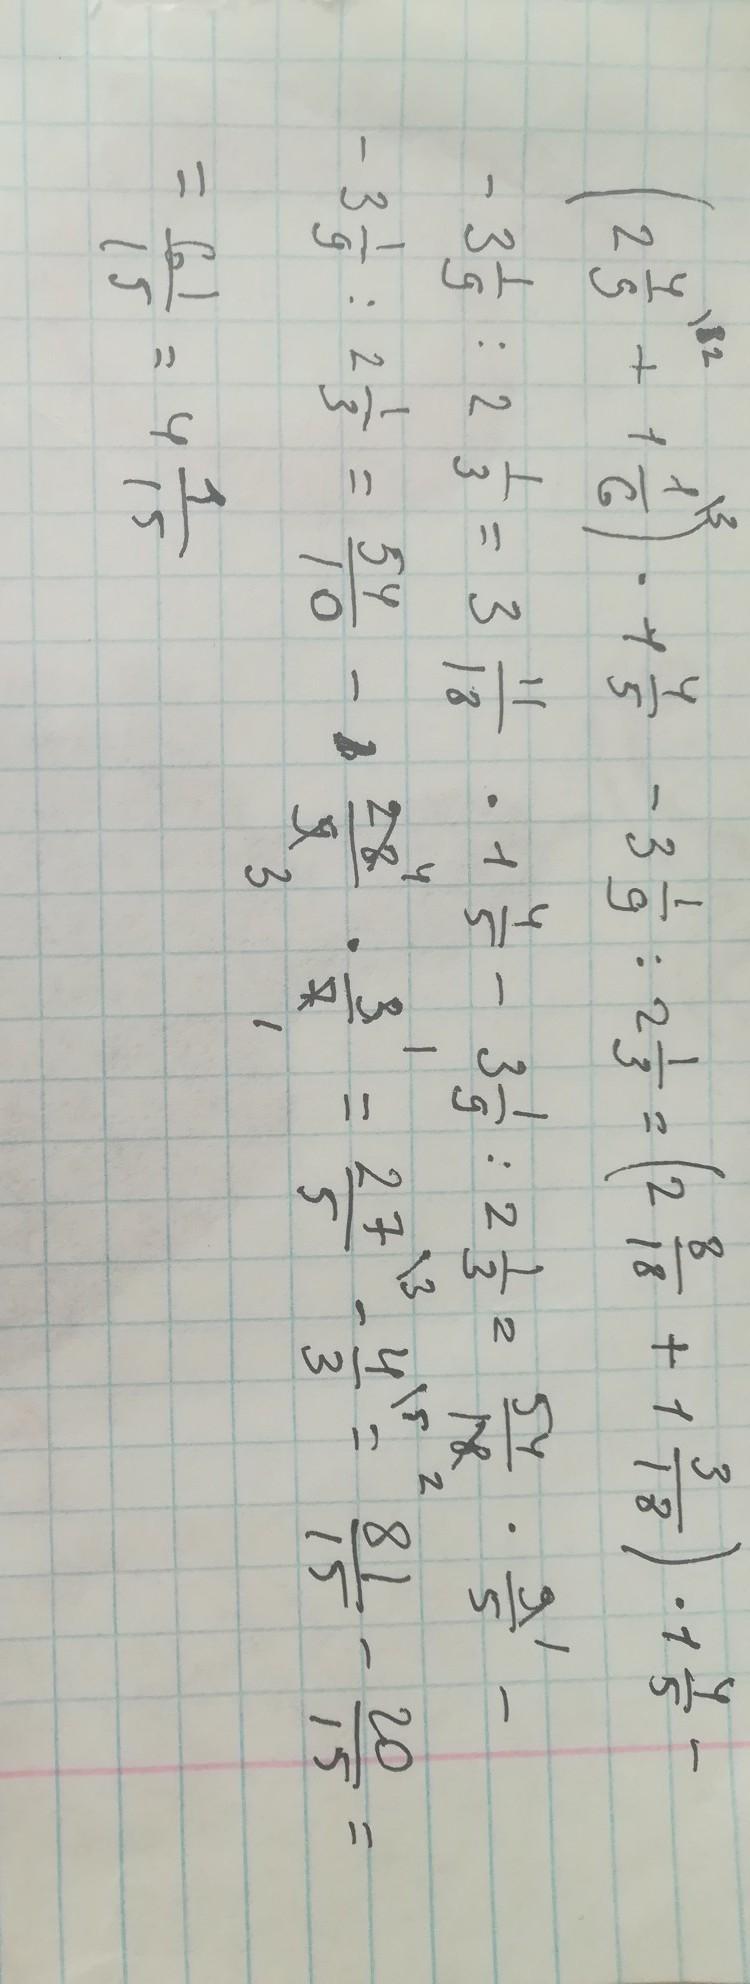 (2 4/9 \2 + 1 1/6 \3) · 1 4/5 - 3 1/9 : 2 1/3 = (2 8/18 + 1 3/18) · 1 4/5 -
- 3 1/9 : 2 1/3 = 3 11/18 · 1 4/5 - 3 1/9 : 2 1/3 = 54/18 2 · 9/5 1 -
- 3 1/9 : 2 1/3 = 54/10 - 28/9 4 3 · 3/7 1 1 = 27/5 \3 - 4/3 \5 = 81/15 - 20/15 =
= 61/15 = 4 1/15